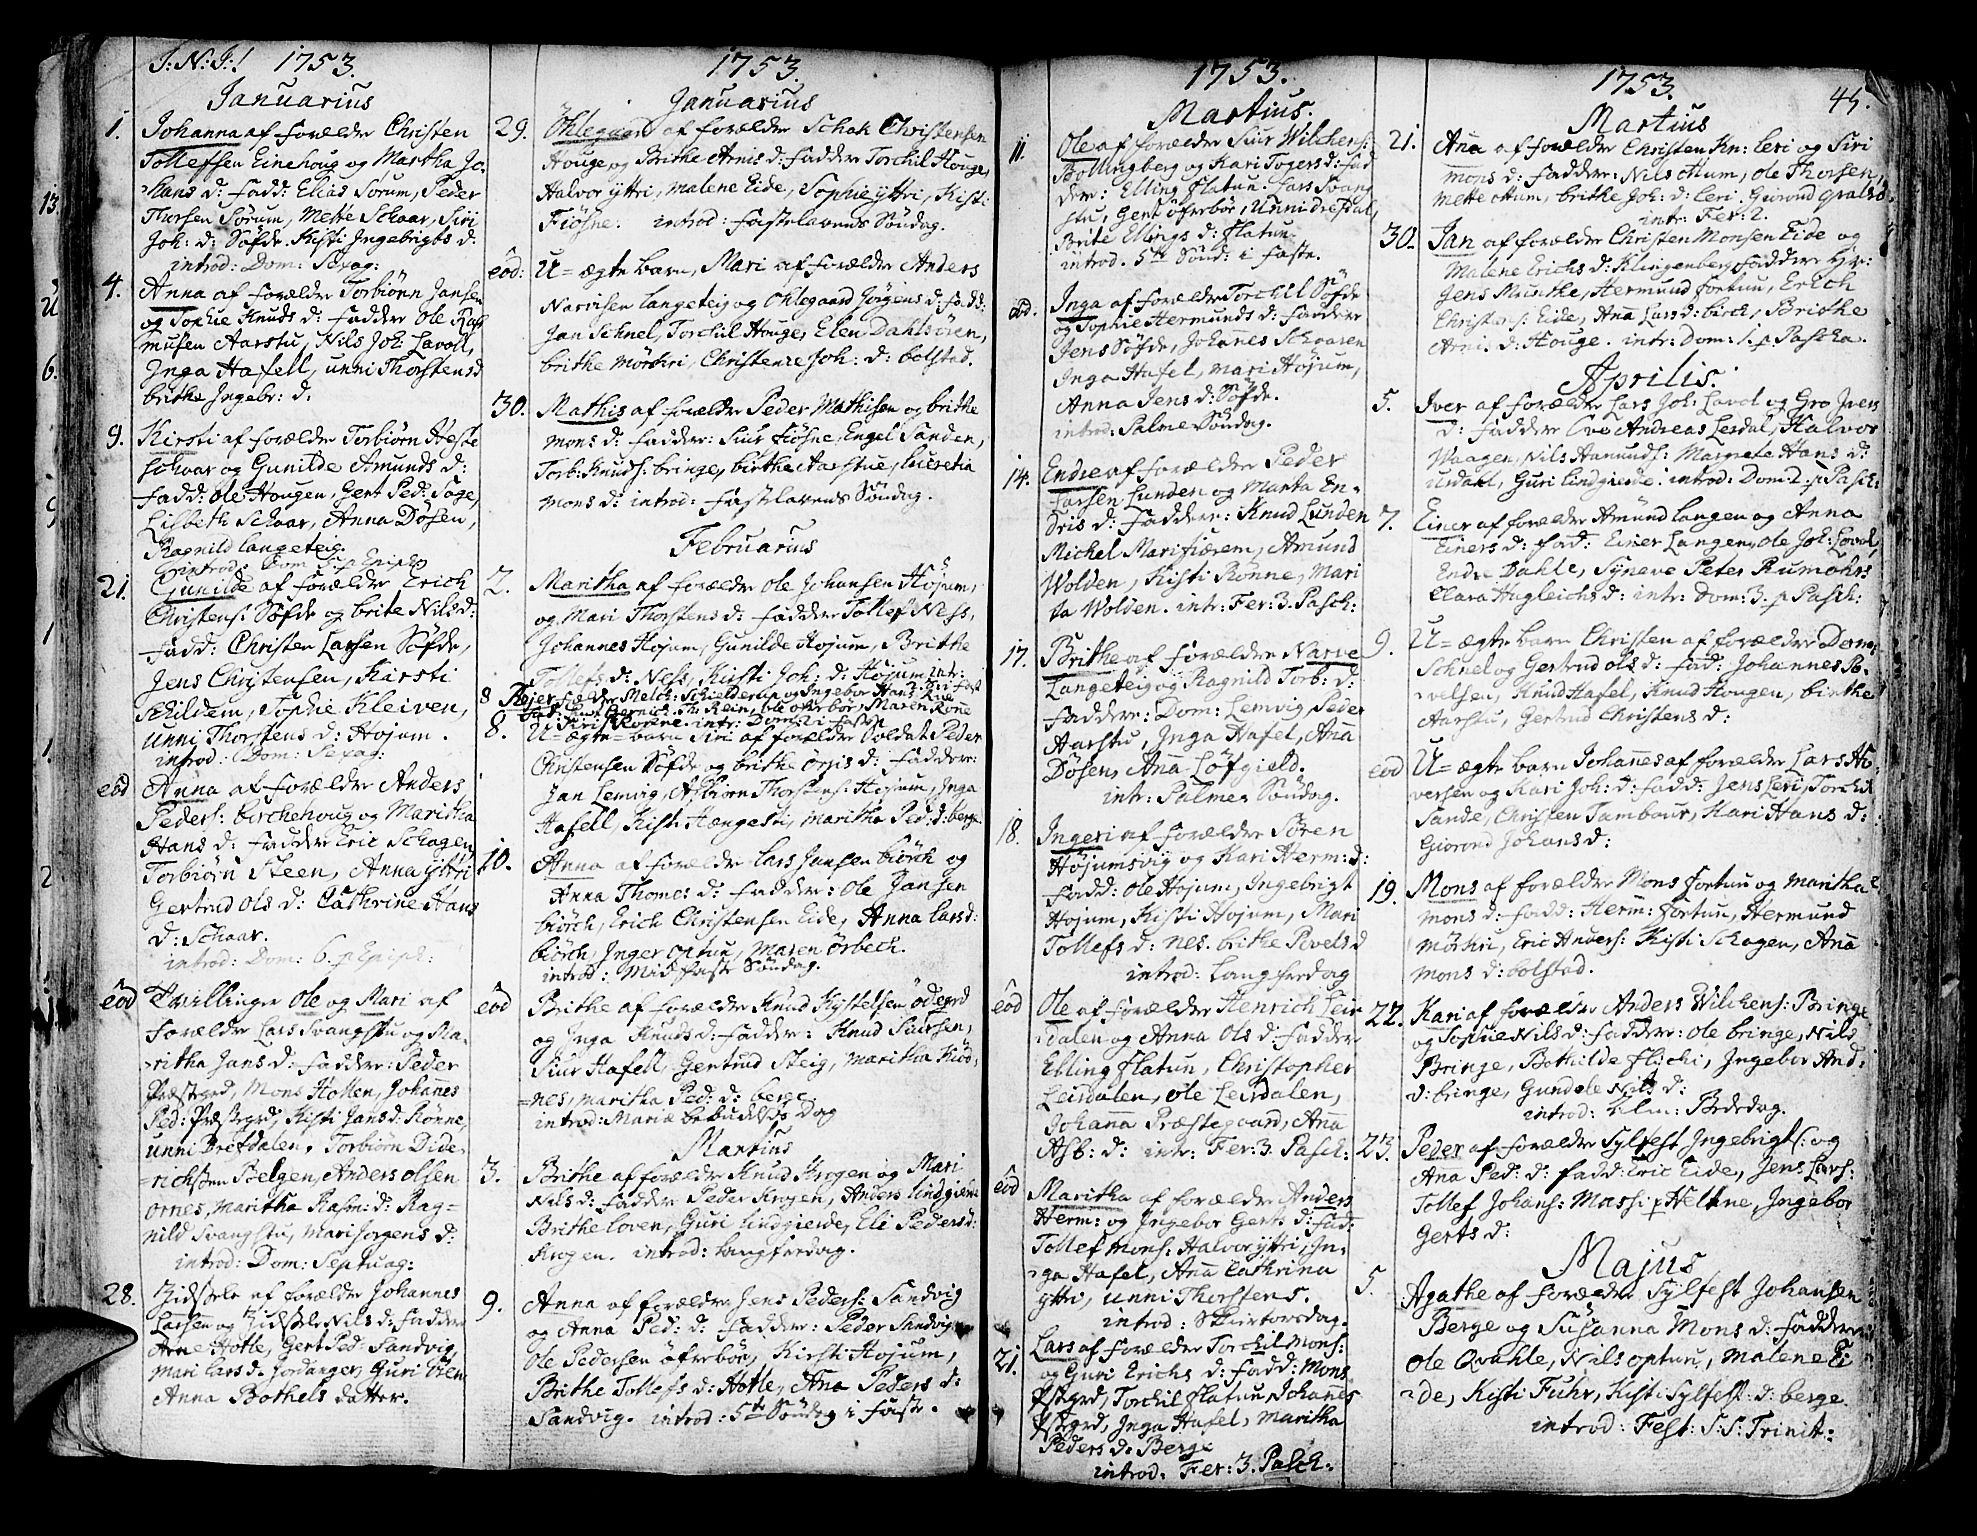 J: N: J:! 1753.
Januarius
1. Johanna af forældre Christen
Tollefsen Einehoug og Martha Jo-
hans d: fadd: Elias Sørum, Peder
Thorsen Sørum, Mette Schaar, Siri
Joh: d: Søfde. Kisti Ingebrigts d.
introd: Dom: Sexag:
4. Anna af forældre Torbiørn Jansen
og Sophie Knuds d: fadder Ole Ras
musen Aarstu, Nils Joh: Lavoll,
Inga Hafell, unni Thorstens d
brithe Ingebr: d.
9. Kirsti af forældre Torbiørn Heste
schaar og Gunilde Amunds d:
fadd: Ole Hougen, Gert Ped: Soge,
Lisbeth Schaar, Anna Døsen,
Ragnild langeteig.
introd: Dom 5 p Epiph
21. Gunilde af forældre Erich
Christens: Søfde og brite Nils d:
fadd: Christen Larsen Søfde,
Jens Christensen, Kirsti
Schildem, Sophie Kleiven,
Unni Thorstens d: Højum.
introd: Dom: Sexag:
eod Anna af forældre Anders
Peders: birchehoug og Maritha
Hans d: fadder Eric Schagen
Torbiørn Steen, Anna Yttri
Gertrud Ols d: Cathrine Hans
d: Schaar.
introd: Dom: 6. p Epiph:
eod Tvillinger Ole og Mari af
forældre Lars Svangstu og Ma-
ritha Jans d: fadder: Peder
Præstgrd, Mons Hollen, Johannes
Ped: Præstgrd, Kisti Jans d: Rønne,
unni Dretdalen, Torbiørn Dide-
richsen Belgen, Anders Olsen
ornes, Maritha Rasm: d: Rag=
nild Svangstu, Mari Jorgens d:
introd: Dom: Septuag:
28. Zidsele af forældre Johannes
Larsen og Zidsele Nils d: fadder
Arne Hotle, Gert Ped: Sandvig,
Mari Lars d: Jordanger, Guri
Anna Bothels datter.
1753.
Januarius
29. Ohlegaar af forældre Schak Christensen
Houge og Brithe Arnis d: fadder Torchil Houge,
Halvor yttri, Malene Eide, Sophie yttri, Kisti
Fiøsne. introd: fastelavens Søndag.
eod: U=ægte barn, Mari af forældre Anders
Narvesen Langeteig og Ohlegaard Jørgens d: fadd:
Jan Schnel, Torchil Houge, Elen Dahlsøren,
brithe Mørchri, Christence Joh: d: bolstad.
30. Mathis af forældre Peder Mathisen og brithe
Mons d: fadder: Siur Fiøsne, Engel Sanden,
Torb: Knuds: bringe, birthe Aarstue, Lucretia
Mons d: introd: fastelavens Søndag.
Februarius
2. Maritha af forældre Ole Johansen Højum,
og Mari Thorstens d: fadder Tollef Ness,
Johannes Højum, Gunilde Højum, Brithe
Tollefs d: Ness, Kisti Joh: d: Højum
8 Rejer forældre Melch: Schielderup og Ingebor
8. U=ægte=barn Siri af forældre Soldat Peder
Christensen Søfde og brithe d: fadder:
Jan Lemvig, Asbiørn Thorstens: Højum, Inga
Hafell, Kisti Hængesti, Maritha Ped: d: berge.
10. Anna af forældre Lars Jansen biørch og
Anna Thomes d: fadder: Ole Jansen
biørch, Erich Christensen Eide, Anna Lars d:
biørch, Inger optun, Maren Ørbech.
introd: Midfaste Søndag.
eod Brithe af forældre Knud Kystelsen ødegrd
og Inga Knuds d: fadder: Knud Siursen,
Siur Hafell, Gertrud Steig, Maritha Kiød-
=nes, Maritha Ped: d: berge
introd: Mariæ bebudelses dag
Martius
3. Brithe af forældre Knud Krogen og Mari
Nils d: fadder Peder Krogen, Anders Lindgieide
Brithe Loven, Guri Lindgieide, Eli Peders d:
Krogen. introd: Langfredag.
9. Anna af forældre Jens Peders: Sandvig
og Anna Ped: d: fadder: Peder Sandvig
Ole Pedersen Øfrebøe, Kirsti Højum,
Brithe Tollefs d: Hotle, Ana Peders d:
Sandvig. introd: 5te Søndag i faste.
1753.
Martius.
11. Ole af forældre Siur Wilchens:
Bollingberg og Kari Togers d: fad
der: Elling Flatun: Lars Svang
stu, Gert Øfrebør, Unni Dretdal,
Brite Ellings d: Flatun.
introd. 5te Sønd: i faste.
eod. Inga af forældre Torchil Søfde
og Sophie Hermunds d: fadder
Jens Søfde, Johannes Schaaren
Inga Hafel, Mari Højum,
Anna Jens d: Søfde.
introd: Palme Søndag.
14. Endre af forældre Peder
Larsen Lunden og Marta En-
dris d: fadder: Knud Lunden
Michel Marifiæren, Amund
Wolden, Kisti Rønne, Mari
ta Wolden. intr: Fer: 3. Pasch:
17. Brithe af forældre Narve
Langeteig og Ragnild Torb: d:
fadder: Dom: Lemvig, Peder
Aarstu, Inga Hafel, Ana
Døsen, Ana Løfgield.
intr: Palme Søndag.
18. Ingeri af forældre Søren
Højumsvig og Kari Herm: d:
fadd: Ole Højum, Ingebrigt
Højum, Kisti Højum, Mari
Tollefs d: nes. brithe Povels d
introd: Langfredag
eod Ole af forældre Henrich Leir
dalen og Anna Ols d: fadder
Elling Flatun, Christopher
Leirdalen, Ole Leirdalen,
Johanna Præstegaard, Ana
Asb: d: intr: Fer: 3. Pasch:
eod Maritha af forældre Anders
Herm: og Ingebor Gerts d: fad:
Tollef Mons: Halvor yttri, In-
ga Hafel, Ana Cathrina
yttri, unni Thorstens.
introd: Skiertorsdag.
21. Lars af forældre Torchil Mons:
og Guri Erichs d: fadd: Mons
Pstgrd, Torchil Flatun, Johanes
Pstgrd, Inga Hafel, Maritha
Peders d: Berge
introd: Fer: 3. Pasch:
1753. 45.
Martius
21. Ana af forældre Christen Kn: Leri og Siri
Mons d: fadder: Nils Ottum, Ole Thorsen,
Mette Ottum, brithe Joh: d: Leri. Giorond
intr: Fer: 2.
30. Jan af forældre Christen Monsen Eide og
Malene Erichs d: Klingenberg fadder Hr:
Jens Munthe, Hermund Fortun, Erich
Christens: Eide, Ana Lars d: birch, Brithe
Arni. d: Houge. intr: Dom: 1. p Pascha.
Aprilis.
5. Iver af forældre Lars Joh: Lavol og Gro Ivers
d: fadder Ove Andreas Lerdal, Halvor
Waagen, Nils Hamunds: Margrete Hans d:
Uidahl, Guri Lindgieide. introd: Dom: 2. p Pasch:
7. Einer af forældre Amund Langen og Anna
Einers d: fad: Einer Langen, Ole Joh: Lavol,
Endre Dahle, Syneve Peter Rumohrs
Clara Hugleichs d: intr: Dom: 3. p Pasch:
9. U=ægte barn Christen af forældre Dom:
Schnel og Gertrud Ols d: fad: Johannes Po-
velsen, Knud Hafel, Knud Hougen, birthe
Aarstu, Gertrud Christens d:
eod U=ægte barn Johannes af forældre Lars Ha-
versen og Kari Joh: d: fadd: Jens Leri, Torchil
Sande, Christen Tambour, Kari Hans d:
Giorond Johans d:
19. Mons af forældre Mons Fortun og Maritha
Mons d: fadd: Herm: Fortun, Hermund
Mørkri, Eric Anders: Kisti Schagen, Ana
Mons d: bolstad.
22. Kari af forældre Anders Wilchens: Bringe
og Sophie Nils d: fadder: Ole bringe, Nils
Bringe, Bothilde Flichi, Ingebor And:
d: bringe, Gundele Nils d:
introd: Alm: Bededag.
23. Peder af forældre Sylfest Ingebrigts: og
Ana Ped: d: fadd: Eric Eide, Jens Lars:
Tollef Johans: Massi p Helene, Ingebor
Gerts d:
Majus
5. Agathe af forældre Sylfest Johansen
Berge og Susanna Mons d: fadder
Ole Qvahle, Nils optun, Malene Ei
de, Kisti Fuhr, Kisti Sylfest: d: berge
introd: Fest: S:S: Trinit: